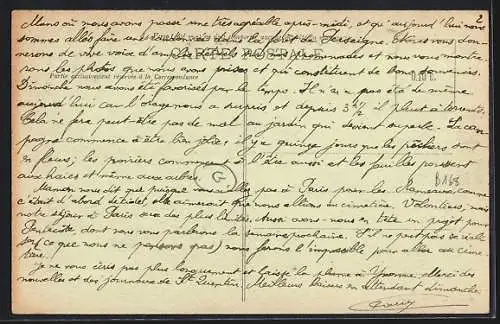 2
Mans où nous avons passé une très agréable après-midi, et qu'aujourd'hui nous
sommes allés faire en dans la forêt de Bersaigne. Et nous vous don-
nerons de vive voix d'amples détails sur ces promenades et nous vous montre-
rons les photos que nous avons prises et qui constituent de bons souvenirs.
CARTE POSTALE
Partie exclusivement réservée à la Correspondance
Dimanche nous avons été favorisés par le temps. Il n'en a pas été de même
aujourd'hui car l'orage nous a surpris et depuis 3h 1/2 il pleut à torrents.
Cela ne fera peut-être pas de mal au jardin qui devient superbe. La cam-
pagne commence à être bien jolie; il y a quinze jours que les pêchers sont
en fleurs; les poiriers commencent à l'être aussi et les feuilles poussent
aux haies et même aux arbres.
G
D168
Maman nous dit que puisque vous n'allez pas à Paris pour les Rameaux comme
c'était d'abord décidé, elle aimerait que nous allions au cimetière. Volontiers, mais
notre séjour à Paris sera des plus Aussi avons-nous en tête un projet pour
Pentecôte dont nous vous parlerons la semaine prochaine. S'il ne peut pas se réali-
ser (ce que nous ne pensons pas) nous ferons l'impossible pour aller au cime-
tière.
Je ne vous écris pas plus longuement et laisse la plume à Yvonne. Merci des
nouvelles et des journaux de St Quentin. Meilleurs baisers en attendant dimanche.